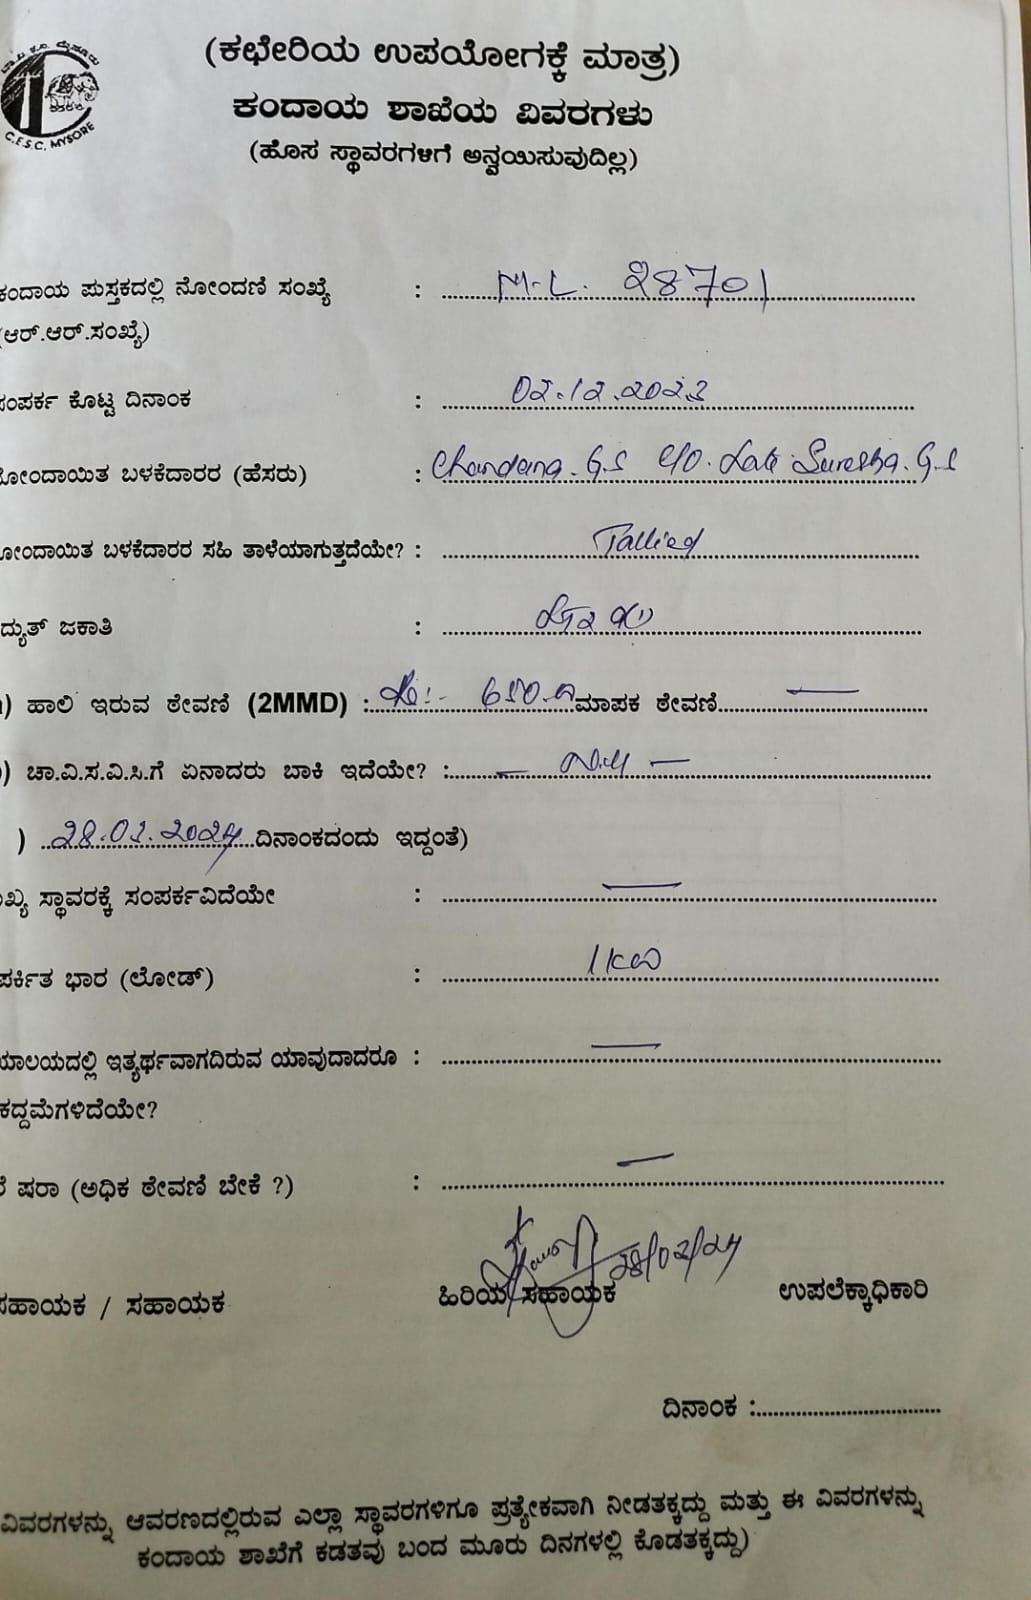 C.E.S.C. MYSORE
(ಕಛೇರಿಯ ಉಪಯೋಗಕ್ಕೆ ಮಾತ್ರ)
ಕಂದಾಯ ಶಾಖೆಯ ವಿವರಗಳು
(ಹೊಸ ಸ್ಥಾವರಗಳಿಗೆ ಅನ್ವಯಿಸುವುದಿಲ್ಲ)
ಕಂದಾಯ ಪುಸ್ತಕದಲ್ಲಿ ನೋಂದಣಿ ಸಂಖ್ಯೆ : M.L. 28701
(ಆರ್.ಆರ್.ಸಂಖ್ಯೆ)
ಸಂಪರ್ಕ ಕೊಟ್ಟ ದಿನಾಂಕ : 02.12.2023
ನೋಂದಾಯಿತ ಬಳಕೆದಾರರ (ಹೆಸರು) : Chandana. G.S C/O. Late Suresha. G.S
ನೋಂದಾಯಿತ ಬಳಕೆದಾರರ ಸಹಿ ತಾಳೆಯಾಗುತ್ತದೆಯೇ? : Tallied
ದ್ಯುತ್ ಜಕಾತಿ :
) ಹಾಲಿ ಇರುವ ಠೇವಣಿ (2MMD) : ಮಾಪಕ ಠೇವಣಿ —
) ಚಾ.ವಿ.ಸ.ವಿ.ಸಿ.ಗೆ ಏನಾದರು ಬಾಕಿ ಇದೆಯೇ? : — Nill —
) 28.02.2024 ದಿನಾಂಕದಂದು ಇದ್ದಂತೆ)
ಖ್ಯ ಸ್ಥಾವರಕ್ಕೆ ಸಂಪರ್ಕವಿದೆಯೇ : —
ಪರ್ಕಿತ ಭಾರ (ಲೋಡ್) : 1KW
ಯಾಲಯದಲ್ಲಿ ಇತ್ಯರ್ಥವಾಗದಿರುವ ಯಾವುದಾದರೂ : —
ಕದ್ದಮೆಗಳಿದೆಯೇ?
ಷರಾ (ಅಧಿಕ ಠೇವಣಿ ಬೇಕೆ ?) : —
28/02/24
ಸಹಾಯಕ / ಸಹಾಯಕ ಹಿರಿಯ ಸಹಾಯಕ ಉಪಲೆಕ್ಕಾಧಿಕಾರಿ
ದಿನಾಂಕ :
ವಿವರಗಳನ್ನು ಆವರಣದಲ್ಲಿರುವ ಎಲ್ಲಾ ಸ್ಥಾವರಗಳಿಗೂ ಪ್ರತ್ಯೇಕವಾಗಿ ನೀಡತಕ್ಕದ್ದು ಮತ್ತು ಈ ವಿವರಗಳನ್ನು
ಕಂದಾಯ ಶಾಖೆಗೆ ಕಡತವು ಬಂದ ಮೂರು ದಿನಗಳಲ್ಲಿ ಕೊಡತಕ್ಕದ್ದು)